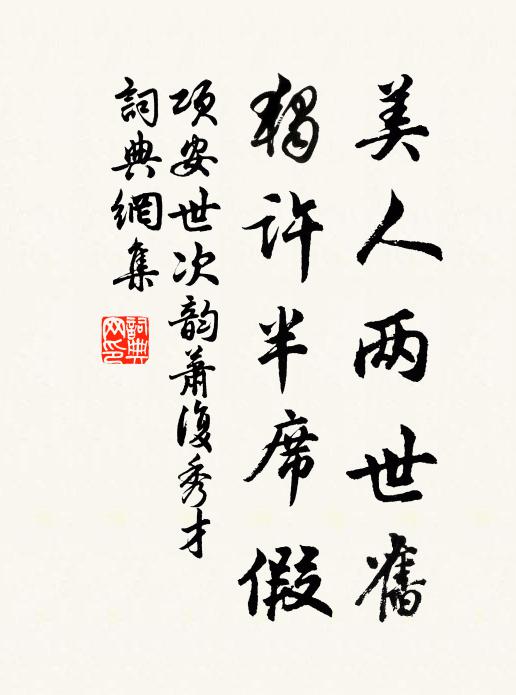 美人两世舊
獨許半席假
项安世次韵蕭復秀才
詞典網集
詞典网印